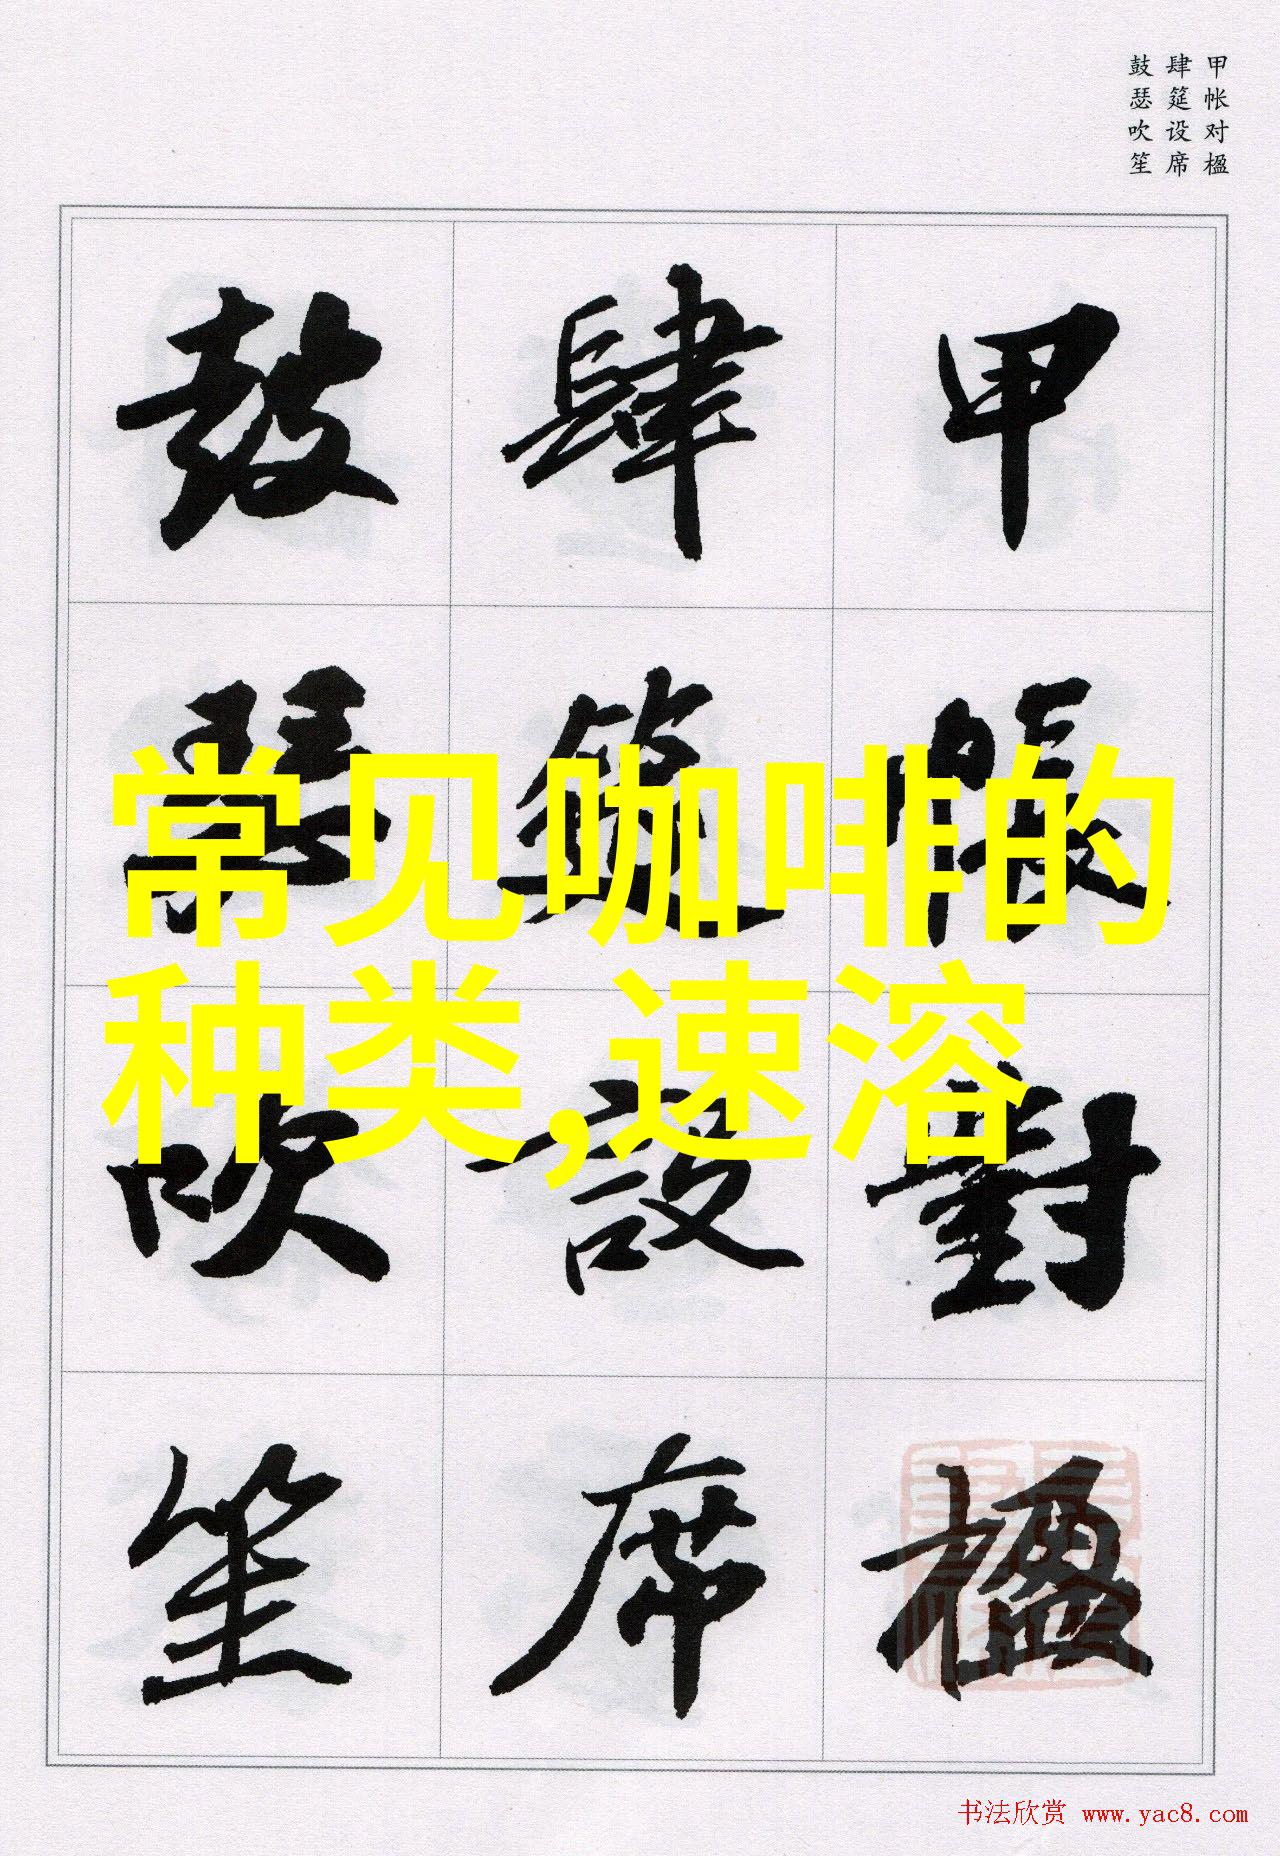 甲帐对楹
肆筵设席
鼓瑟吹笙
甲帳對楹
肆筵設席
鼓瑟吹笙
常见咖啡的
种类,速溶
书法欣赏 www.yac8.com